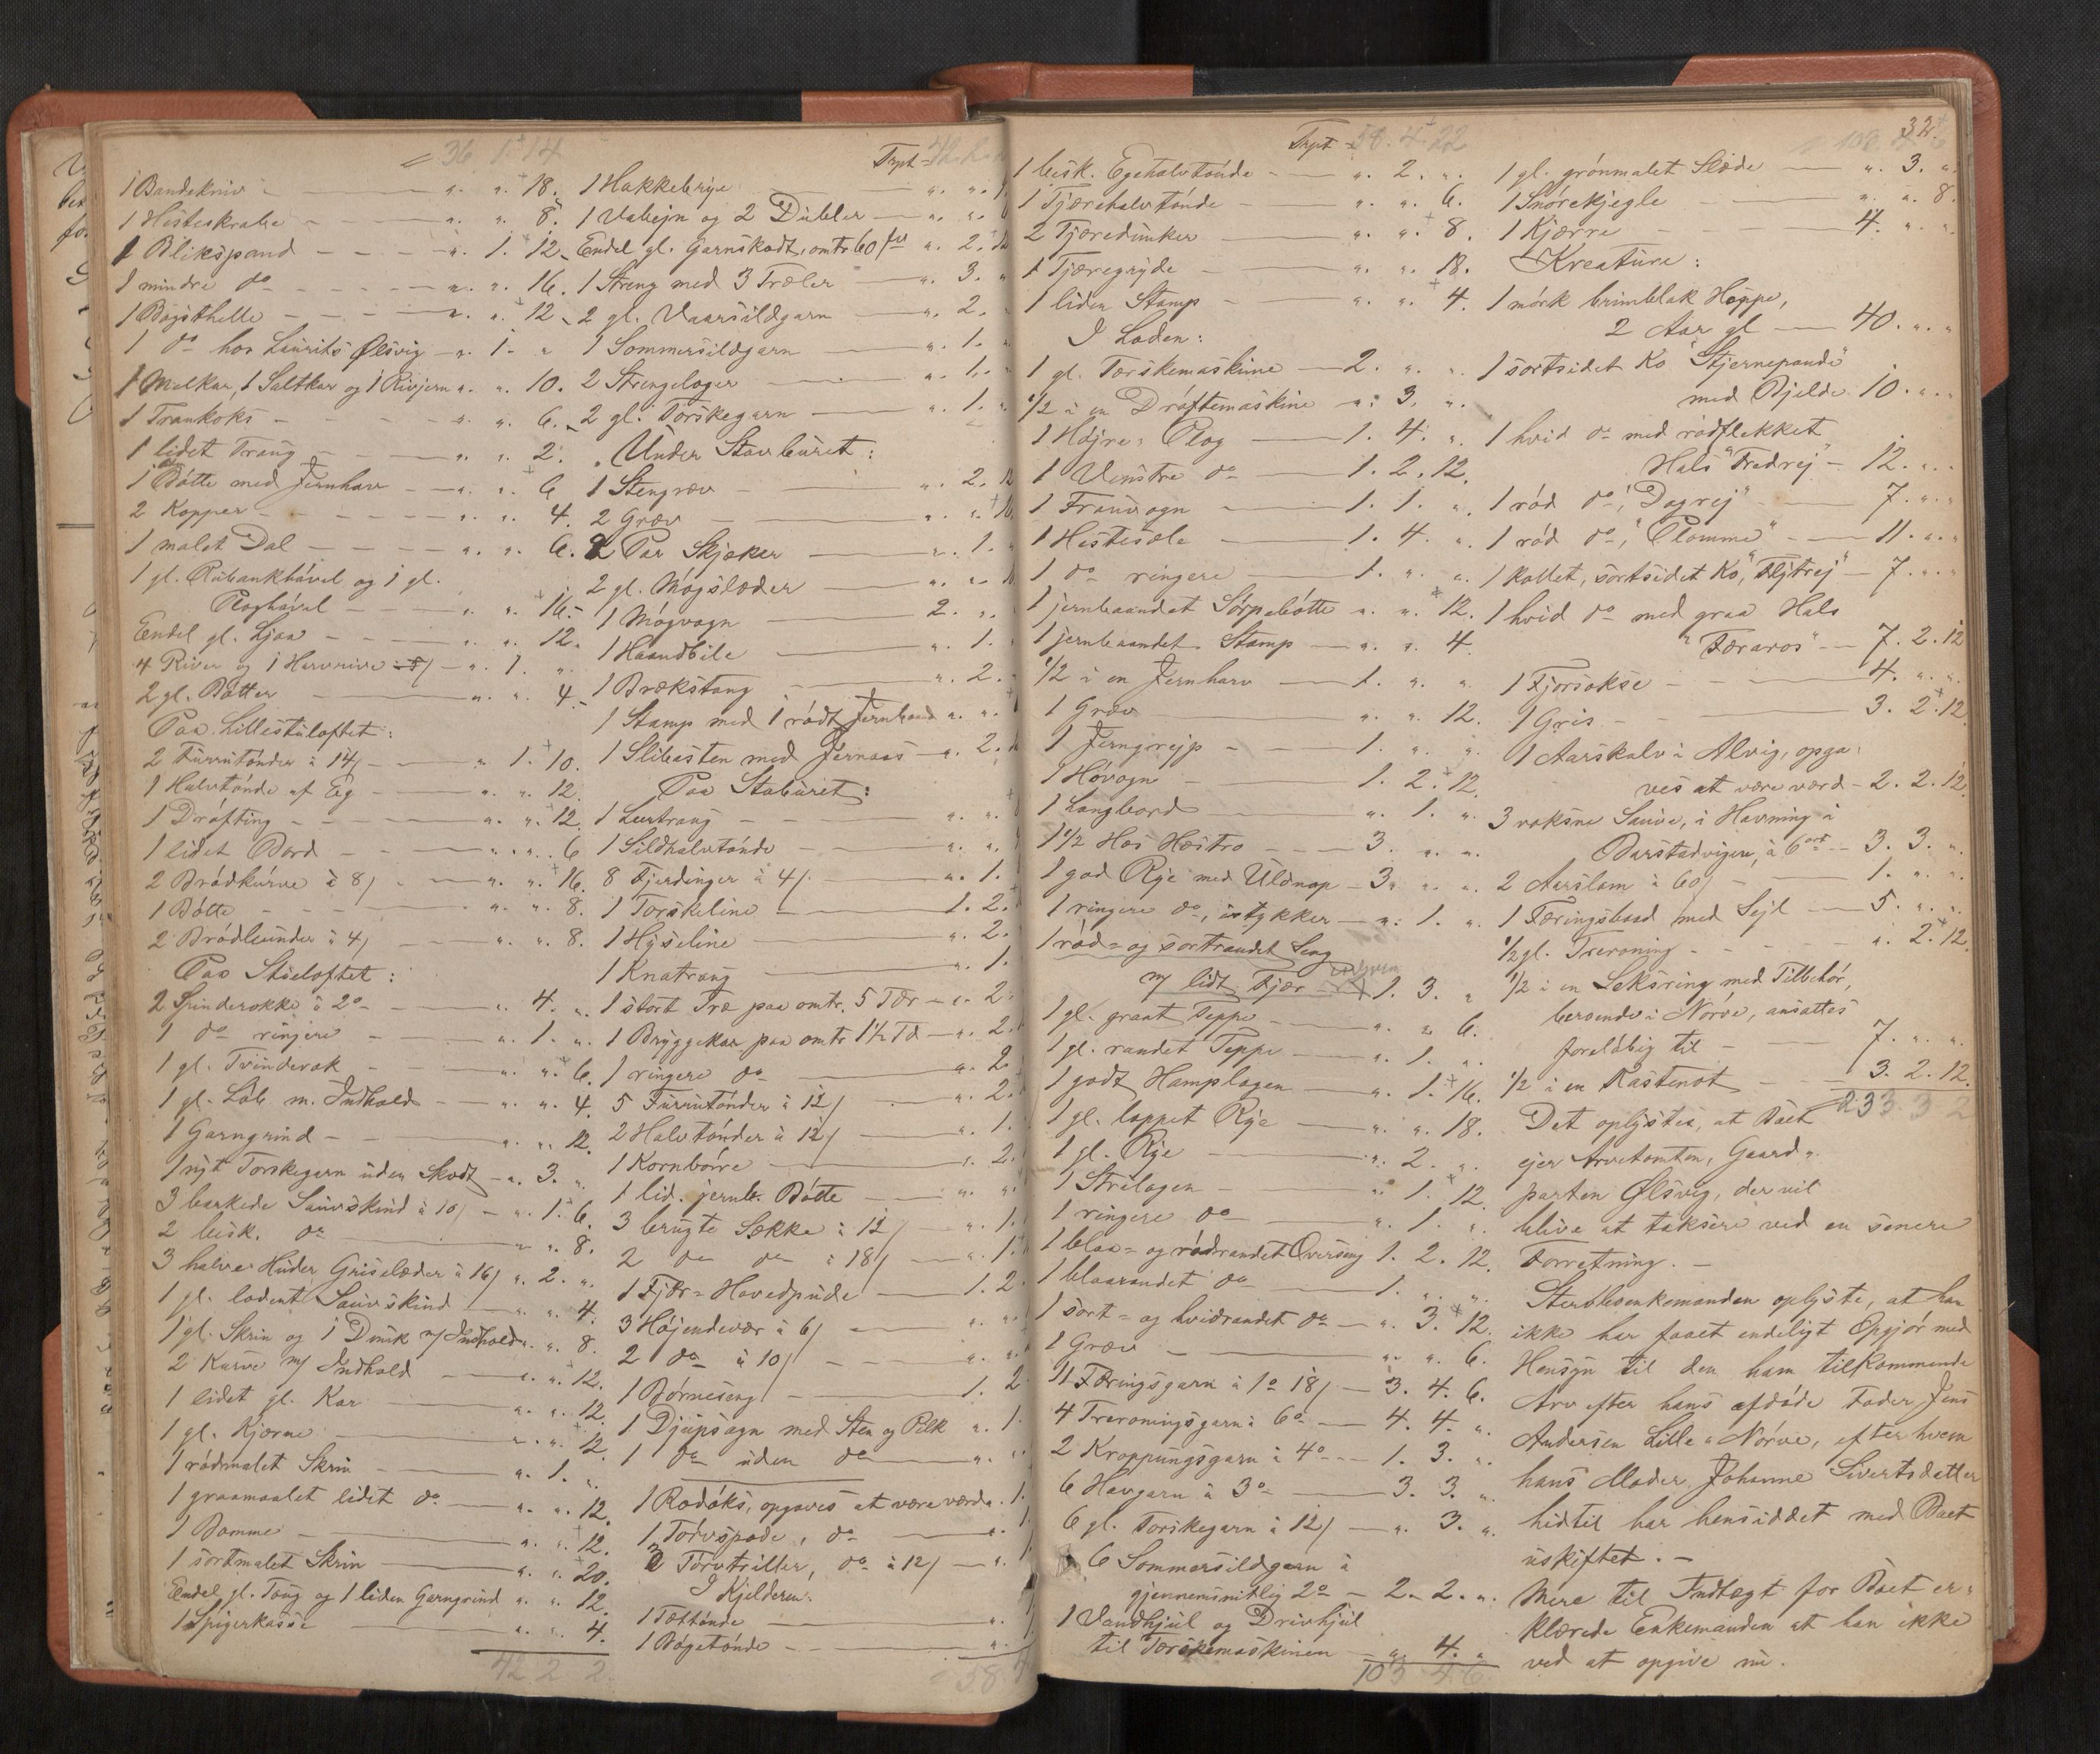 36. 1. 14
1 Bandekniv - „ „ 18.
1 Hesteskrabe - „ „ 8.
1 Blikspand - „ 1. 12.
1 mindre do - „ „ 16.
1 Bagsthelle - „ „ 12.
1 do hos Laurits Ølsvig - „ 1. „
1 Melkar, 1 Saltkar og 1 Rivjern „ „ 10.
1 Trankoks - „ „ 6.
1 lidet Traug - „ „ 2.
1 Bótte med Jernhav - „ „ 6
2 Kopper - „ „ 4.
1 malet Dal - „ „ 6.
1 gl. Rubankhóvel og 1 gl.
Ploghóvel - „ „ 16.
Endel gl. Ljaa - „ „ 12.
4 River og 1 Harvrive - „ 1. „
2 gl. Bótter - „ „ 4.
Paa Lillestuloftet:
2 Furrutónder à 14/ - „ 1. 10.
1 Halvtónde af Eg - „ „ 12.
1 Dráfting - „ „ 12.
1 lidet Bord - „ „ 6
2 Bródkurve à 8/ - „ „ 16.
1 Bótte - „ „ 8.
2 Bródbunder à 4/ - „ „ 8.
Paa Stueloftet:
2 Spinderokke à 2o - „ 4. „
1 do ringere - „ 1. „
1 gl. Tvinderok - „ „ 6.
1 gl. Lób m. Indhold - „ „ 4.
1 Garngrind - „ „ 12.
1 nyt Torskegarn uden Skodt - „ 3. „
3 barkede Sauvskind à 10/ - „ 1. 6.
2 besk. do - „ „ 8.
3 halve Huder Griselæder à 16/ „ 2. „
1 gl. lodent Sauvskind - „ „ 4.
1 gl. Skrin og 1 Dunk m/ Indhold „ „ 8.
2 Kurve m/ Indhold - „ „ 12.
1 lidet gl. Kar - „ „ 12.
1 gl. Kjærne - „ „ 12.
1 ródmalet Skrin - „ 1. „
1 graamaalet lidet do - „ „ 12.
1 Bomme - „ „ 12.
1 sortmalet Skrin - „ „ 20.
Endel gl. Taug og 1 liden Garngrind „ „ 12.
1 Spigerkasse - „ „ 4.
42 2 2.
Trpt 42. 2.
1 Hakkebrye - „ „
1 Vabejn og 2 Dubler - „ „
Endel gl. Garnskodt, omtr. 60 fv „ 2.
1 Streng med 3 Træler - „ 3.
2 gl. Vaarsildgarn - „ 2.
1 Sommersildgarn - „ 1.
2 Strengeloger - „ 1.
2 gl. Torskegarn - „ 1.
Under Stavburet:
1 Stengrev - „ 2. 12
2 Grev - „ „ 16.
2 Par Skjæker - „ 1.
2 gl. Mógslæder - „ „
1 Mógvogn - 2. „
1 Haandbile - „ 1.
1 Brækstang - „ 2.
1 Stamp med 1 ródt Jernbaand „ „
1 Slibesten med Jernaas - „ 2.
Paa Staburet:
1 Lurtraug - „ „
1 Sildhalvtónde - „ „
8 Fjerdinger à 4/ - „ 1.
1 Torskeline - 1. 2.
1 Hyseline - „ 2.
1 Knatraug - „ 1.
1 stort Træ paa omtr. 5 Tdr - „ 2
1 Bryggekar paa omtr 1½ Td - „ 2.
1 ringere do - „ 2
5 Furrutónder à 12/ - „ 2.
2 Halvtónder à 12/ - „ 1.
1 Kornbórre - „ 2.
1 lid. jernb. Bótte - „ „
3 brugte Sække à 12/ - „ 1.
2 do do à 18/ - „ 1.
1 Fjær=Hovedpude - 1. 2
3 Hójendevar à 6/ - „ „
2 do à 10/ - „ „
1 Bórneseng - 1. 2
1 Djupsagn med Sten og Pilk „ 1.
1 do uden do „ „
1 Rodóks, opgaves at være værd „ 1.
1 Torvspade, do - „ 1.
2 Torvtriller, do à 12/ - „ 1.
I Kjelderen:
1 Tættónde - „
1 Bógetónde - „
58.
32.
Trpt 58. 4. 22
1 besk. Egehalvtónde - „ 2. „
1 Tjærehalvtónde - „ „ 6.
2 Tjæredunker - „ „ 8.
1 Tjæregryde - „ „ 18.
1 liden Stamp - „ „ 4.
I Laden:
1 gl. Tærskemaskine - 2. „ „
½ i en Dróftemaskine „ 3. „
1 Hójre= Plog - 1. 4. „
1 Venstre do - 1. 2. 12.
1 Frauvogn - 1. 1. „
1 Hestesæle - 1. 4. „
1 do ringere - 1. „ „
1 jernbaandet Sórpebótte „ „ 12.
1 jernbaandet Stamp - „ „ 4.
½ i en Jernharv - 1. „ „
1 Grev - „ „ 12.
1 Jerngrejp - 1. „ „
1 Hóvogn - 1. 2. 12.
1 Langbord - „ 1. „
1½ Hæs Hæstro - 3. „ „
1 god Rye med Uldnap - 3. „ „
1 ringere do, istykker - „ 1. „
1 ród= og sortrandet Seng
m/ lidt Fjær - 1. 3. „
1 gl. graat Teppe - „ „ 6.
1 gl. randet Teppe - „ 1. „
1 godt Hamplagen - „ 1. 16.
1 gl. lappet Rye - „ „ 18.
1 gl. Rye - „ 2. „
1 Strilagen - „ 1. 12.
1 ringere do - „ 1. „
1 blaa= og ródrandet Overseng 1. 2. 12.
1 blaarandet do - 1. „ „
1 sort= og hvidrandet do - „ 3. 12.
1 Grev - „ „ 6.
11 Færingsgarn à 1o 18/ - 3. 4. 6.
4 Treroningsgarn à 6o - 4. 4. „
2 Kroppungsgarn à 4o - 1. 3. „
6 Havgarn à 3o - 3. 3. „
6 gl. Torskegarn à 12/ - „ 3. „
6 Sommersildgarn à
gjennemsnitlig 2o - 2. 2. „
1 Vandhjul og Drivhjul
til Tærskemaskinen - „ 4. „
103 4. 6
103. 4. 6
1 gl. grónmalet Slæde - „ 3. „
1 Snórekjegle - „ „ 8.
1 Kjærre - 4. „ „
Kreature:
1 mórk brimblak Hoppe,
2 Aar gl - 40. „ „
1 sortsidet Ko "Stjernepande"
med Bjelde. 10. „ „
1 hvid do med ródflekket
Hals "Fredrej" - 12. „ „
1 ród do, "Dagrej" - 7. „ „
1 ród do, "Plomme" - 11. „ „
1 kollet, sortsidet Ko, "Flytrej" - 7. „ „
1 hvid do med graa Hals
"Færaros" - 7. 2. 12
1 Fjorsokse - 4. „ „
1 Gris - 3. 2. 12.
1 Aarskalv i Alvig, opga=
ves at være værd - 2. 2. 12.
3 voksne Sauve, i Havning i
Barstadvigen, à 6 ort - 3. 3. „
2 Aarslam à 60/ - 1. „ „
1 Færingsbaad med Sejl - 5. „ „
½ gl. Treroning - „ 2. 12.
½ i en Seksring med Tilbehór,
beroende i Nórve, ansattes
forelóbig til - 7. „ „
½ i en Kastenot - 3. 2. 12.
233. 3 2
Det oplystes, at Boet
ejer Arvetomten, Gaard=
parten Ølsvig, der vil
blive at taksere ved en senere
Forretning. -
Sterbboenkemanden oplyste, at han
ikke har faaet endeligt Opgjór med
Hensyn til den ham tilkommende
Arv efter hans afdóde Fader Jens
Andersen Lille=Nórve, efter hvem
hans Moder Johanne Sivertsdatter
hidtil har hensiddet med Boet
uskiftet. -
Mere til Indtægt for Boet er=
klærede Enkemanden at han ikke
ved at opgive nu.